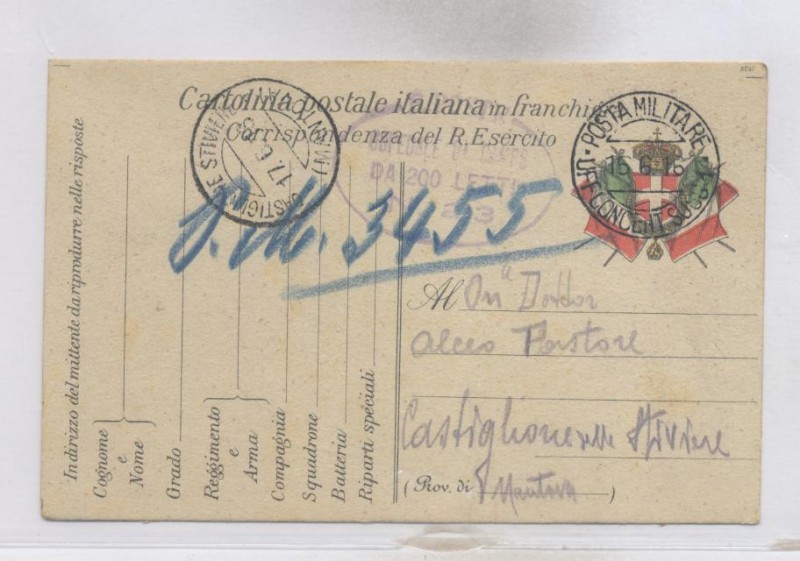 Cartolina postale italiana in franchigia
Corrispondenza del R. Esercito
CASTIGLIONE STIVIERE (MANTOVA)
17. 6. 18
DA 200 LETTI
POSTA MILITARE
15. 6. 18
UFF. CONCENT.
P. M. 3455
Al On. Dottor
Alceo Pastore
Castiglione delle Stiviere
(Prov. di Mantova)
Indirizzo del mittente da riprodurre nelle risposte
Cognome e Nome
Grado
Reggimento e Arma
Compagnia
Squadrone
Batteria
Riparti speciali